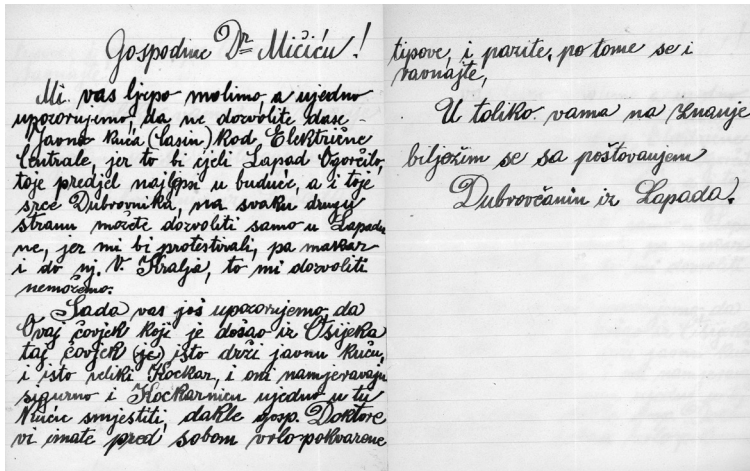 Gospodine Dr Mičiću!
Mi vas ljepo molimo, a ujedno
upozorujemo, da ne dozvolite dase
Javna kuća (Casin) kod Električne
Centrale, jer to bi cjeli Lapad Ogorčilo,
toje predjel najlepsi u buduće, a i toje
srce Dubrovnika, na svaku drugu
stranu možete dozvoliti samo u Lapadu
ne, jer mi bi protestirali, pa makar
i do nj. V. Kralja, to mi dozvoliti
nemožemo.
Sada vas još upozorujemo, da
Ovaj čovjek koji je došao iz Osijeka
taj čovjek (je) isto drži javnu kuću,
i isto veliki Kockar, i oni namjeravaju
sigurno i Kockarnicu ujedno u tu
Kućic smjestiti, dakle gosp. Doktore
vi imate pred sobom vrlo pokvarene
tipove, i pazite, po tome se i
ravnajte,
U toliko vama na znanje
biljezim se sa poštovanjem
Dubrovčanin iz Lapada.